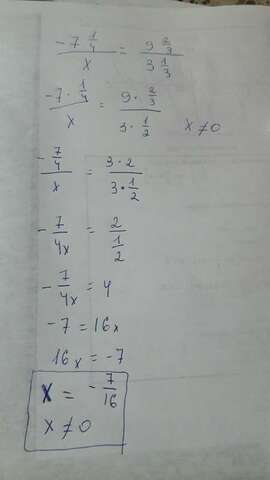 -7 1/4 / x = 9 2/3 / 3 1/3
-7 · 1/4 / x = 9 · 2/3 / 3 · 1/2 x ≠ 0
-7/4 / x = 3 · 2 / 3 · 1/2
-7/4x = 2 / 1/2
-7/4x = 4
-7 = 16x
16x = -7
x = -7/16
x ≠ 0